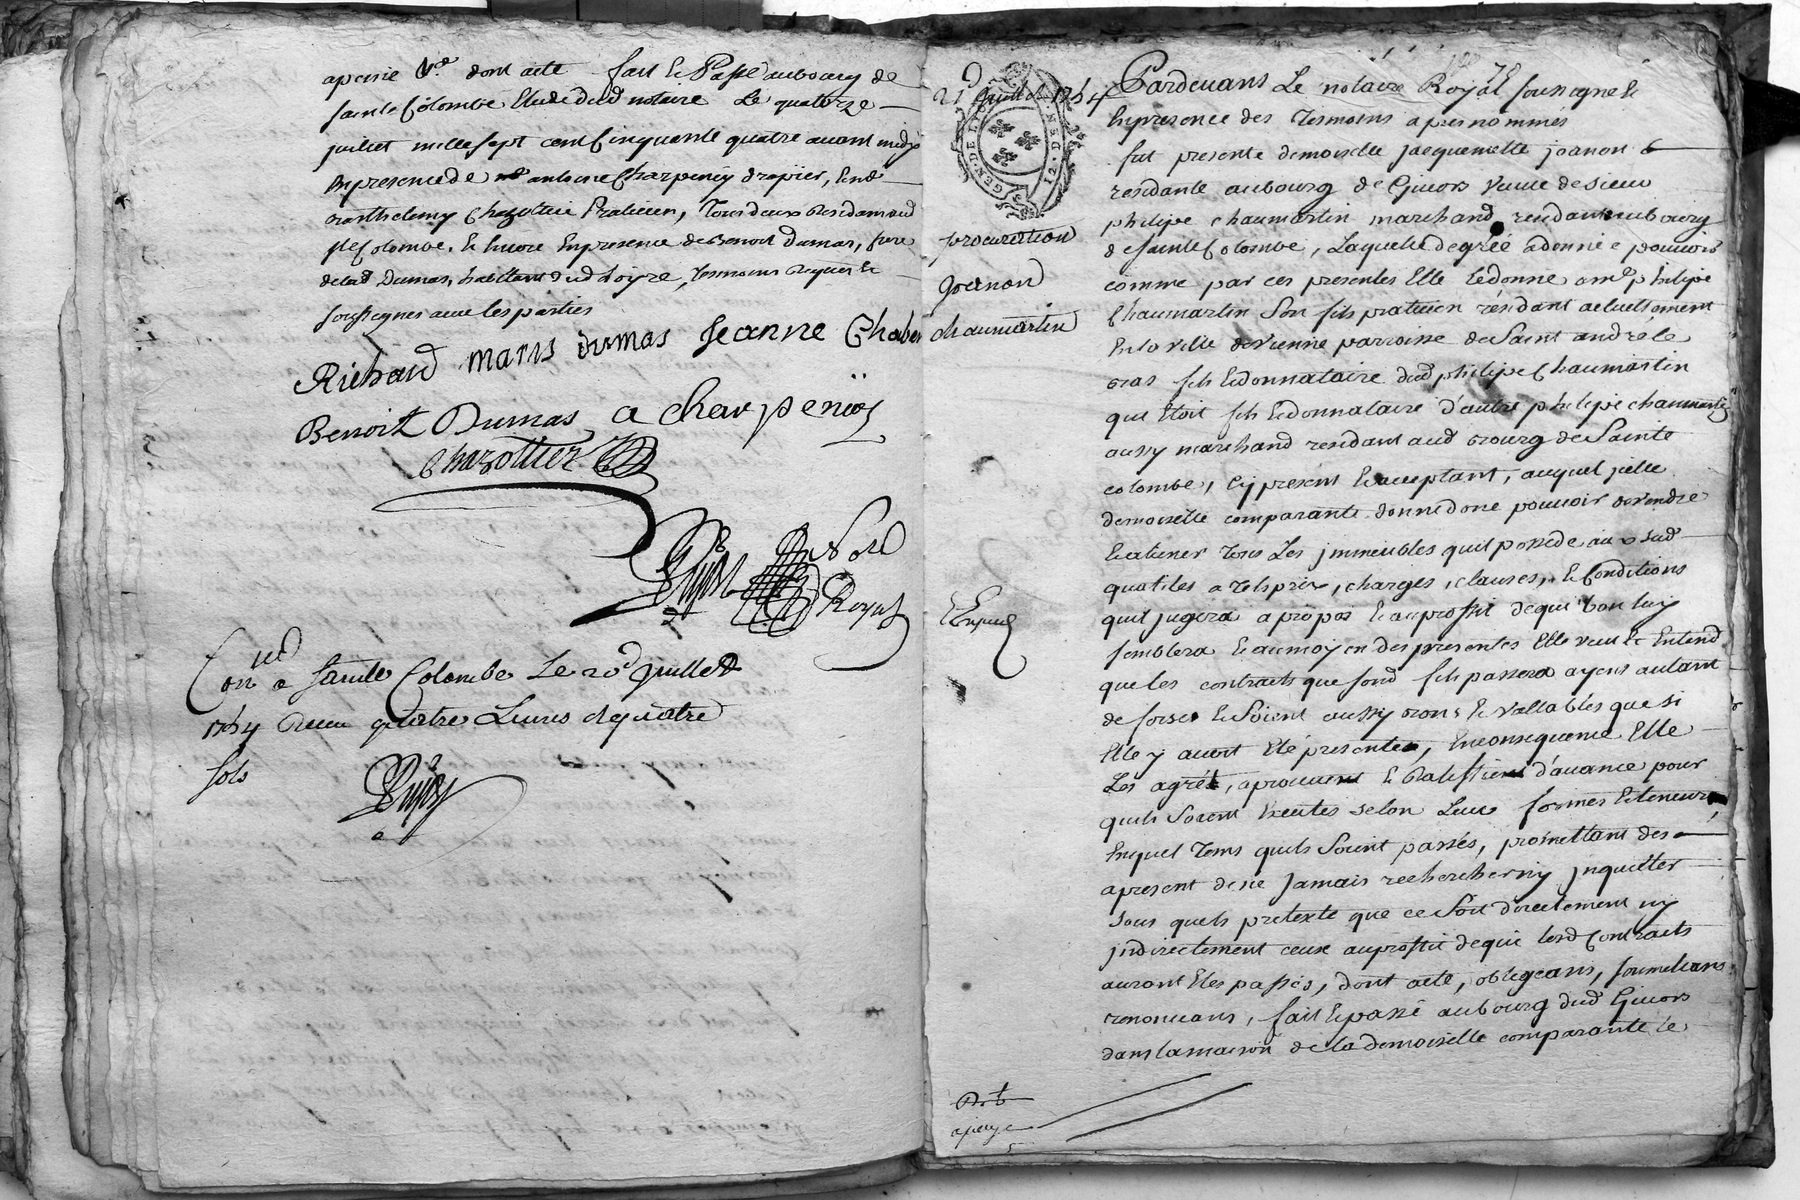 dont acte fait & Passé aubourg de
Sainte Colombe Etude dud notaire Le quatorze
juillet mille sept cent Cinquante quatre avant midy
En presence de antoine Charpenay drapier, &
Barthelemy Chazottier Praticien, Tous deux Residants aud
Ste Colombe, & Encore En presence de Benoit Dumas, frere
delad Dumas, habitant dud Loyre, Temoins Requis &
Soussignes avec les parties
Richaud maris dumas Jeanne Chaber
Benoit Dumas a charpenay
Chazottier
Not
Royal
Con a Sainte Colombe Le 20 Juillet
1754 Receu quatre Livres &quatre
Sols
21 Juillet 1754
GEN. DE LION
12. D
procuration
Joanon
chaumartin
Pardevant Le notaire Royal soussigné &
En presence des Temoins apres nommés
fut presente demoiselle jacquemette joanon
residante aubourg de Givors veuve de sieur
philipe chaumartin marchand residant aubourg
de Sainte Colombe, Laquelle de gré a donné pouvoir
comme par ces presentes Elle Le donne a me philipe
Chaumartin Son fils praticien résidant actuellement
En la ville de vienne parroisse de Saint andre le
bas fils & donnataire dud philipe Chaumartin
qui Etoit fils & donnataire d'autre philipe chaumartin
aussy marchand residant aud bourg de Sainte
colombe, Cy présent & acceptant, auquel jcelle
demoiselle comparante donne donc pouvoir de vendre
& aliener tous Les jmmeubles quil possede au sud
qualites a tels prix, charges, clauses, & Conditions
quil jugera a propos & au proffit de qui bon luy
semblera & au moyen des presentes Elle veut & Entend
que les contracts que sond fils passera ayent autant
de force & Soient aussy bons & vallables que si
Elle y avoit Eté presente, En consequence Elle
Les agrée, aprouvent & Ratiffient d'avance pour
quils Soient Executés selon Leur formes & teneurs,
En quel Tems quils Soient passés, promettant des
apresent de ne Jamais rechercher ny jnquietter
Sous quels pretexte que ce Soit directement ny
jndirectement ceux au proffit de qui lesd Contracts
auront Etes passés, dont acte, obligeans, soumettans
renonceans, fait & passé au bourg dud Givors
dans la maison de la demoiselle comparante le